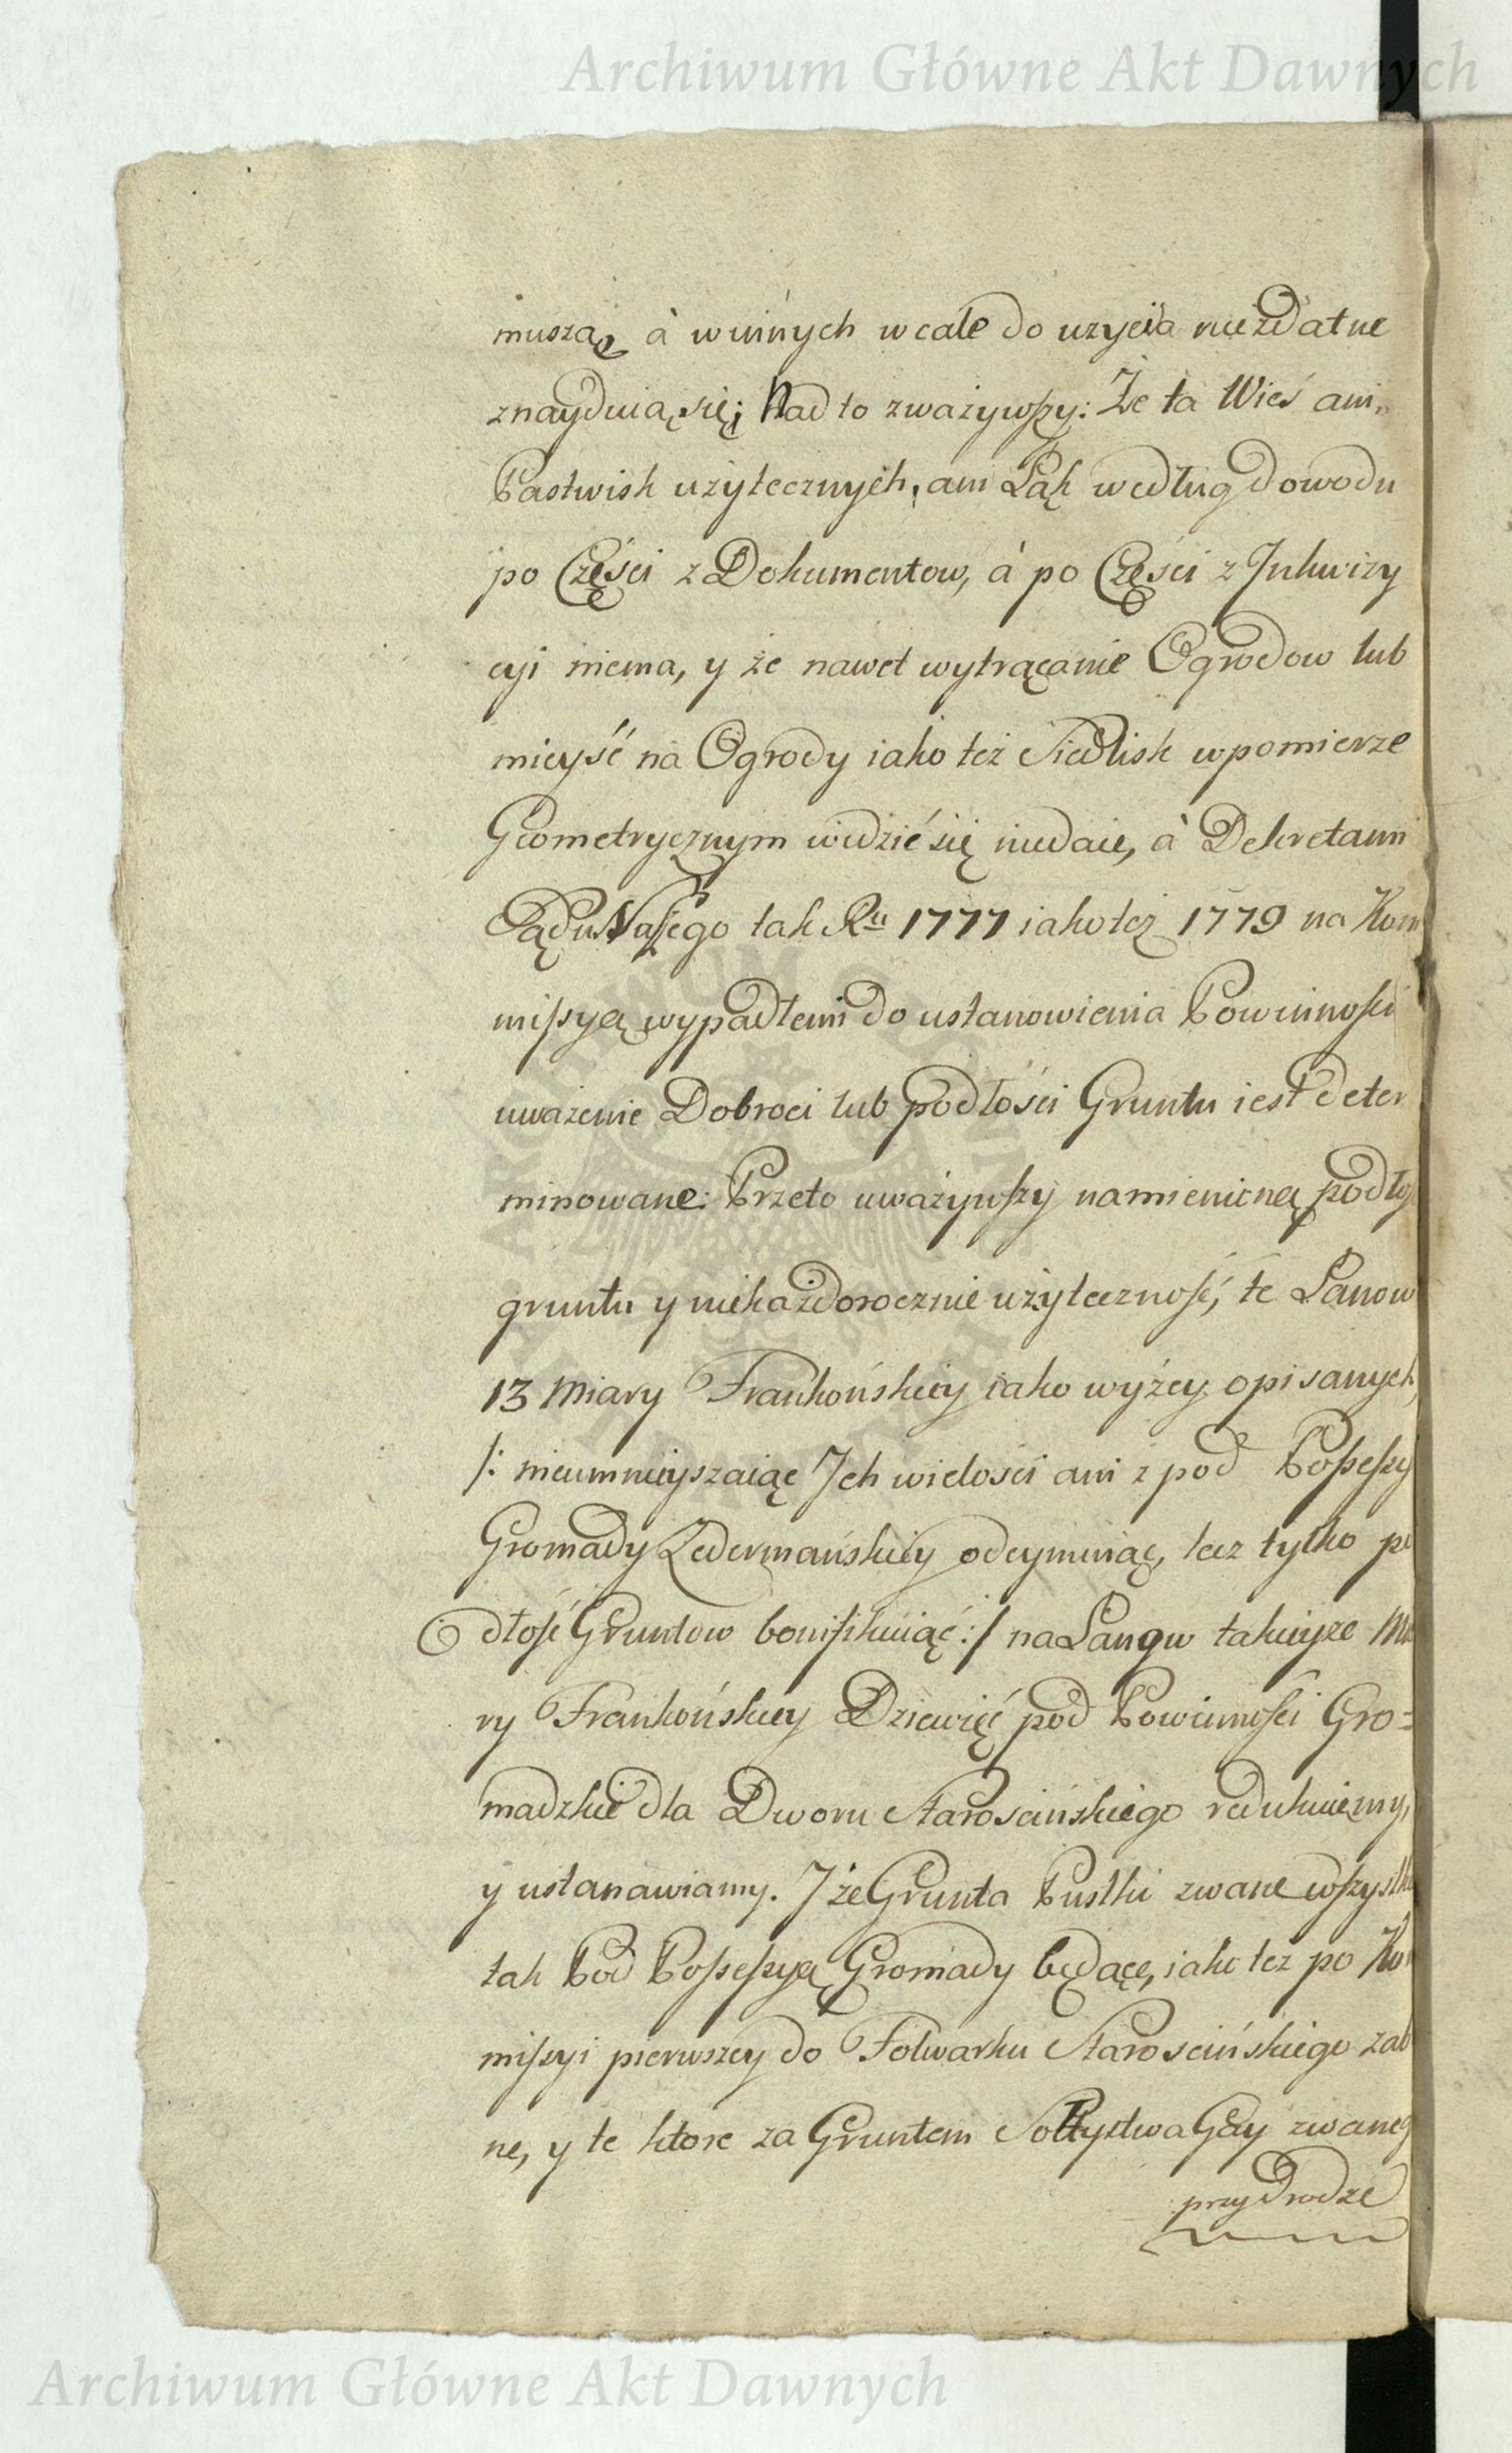 Archiwum Główne Akt Dawnych
muszą, à w innych wcale do uzycia niezdatne
znayduią się; Nad to zważywszy: Że ta Wieś ani
Pastwisk użytecznych, ani Łąk według dowodu
po Części z Dokumentow, á po Części z Inkwizy
cyi niema, y że nawet wytrącanie Ogrodow lub
mieyść na Ogrody iako też Siedlisk w pomierze
Geometrycznym widzieć się niedaie, à Dekretami
Sądu Naszego tak Ru 1777 iako też 1779 na Kom
missyą wypadłemi do ustanowienia Powinności
uważenie Dobroci lub podłości Gruntu iest deter
minowane: Przeto uważywszy namienioną podło
gruntu y niekażdorocznie użyteczność, te Łanow
13 Miary Frankońskiey iako wyżey opisanych,
/: nieumnieyszaiąc Ich wielości ani z pod Possessy
Gromady Ledermańskiey odeymuiąc, lecz tylko po
dłość Gruntow bonifikuiąc :/ na Łanow takieyże Mia
ry Frankońskiey Dziewięć pod Powinności Gro=
madzkie dla Dworu Starościńskiego redukuiemy,
y ustanawiamy. I że Grunta Pustki zwane wszystkie
tak Pod Possessyą Gromady będące, iako tez po Ko
missyi pierwszey do Folwarku Starościńskiego zab
ne, y te ktore za Gruntem Sołtystwa Gay zwaneg
przy Drodze
Archiwum Główne Akt Dawnych